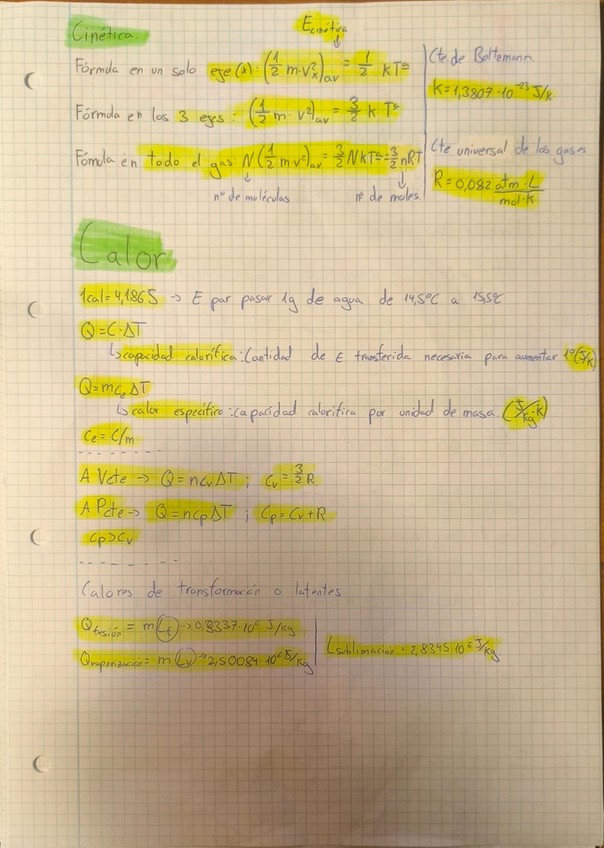 Cinética
E cinética
↓
Fórmula en un solo eje(x): (1/2 m·v²ₓ)av = 1/2 kT
Cte de Boltzmann
k = 1,3807·10⁻²³ J/k
Fórmula en los 3 ejes: (1/2 m·v²)av = 3/2 k T
Fómula en todo el gas N(1/2 mv²)av = 3/2 NkT = 3/2 nRT
Cte universal de los gases
R = 0,082 atm·L/mol·K
↓ nº de moléculas
↓ nº de moles
Calor
1cal = 4,186J → E par pasar 1g de agua de 14,5ºC a 15,5ºC
Q = C·ΔT
↳ capacidad calorífica: Cantidad de E transferida necesaria para aumentar 1º (J/K)
Q = mCeΔT
↳ calor específico: capacidad calorífica por unidad de masa. (J/kg·k)
Ce = C/m
A Vcte → Q = ncvΔT ; Cv = 3/2 R
A Pcte → Q = ncpΔT ; Cp = Cv + R
Cp > Cv
Calores de transformación o latentes
Qfusión = m Lf → 0,3337·10⁶ J/kg
Qvaporización = m Lv → 2,50084·10⁶ J/kg
Lsublimación = 2,8345·10⁶ J/kg